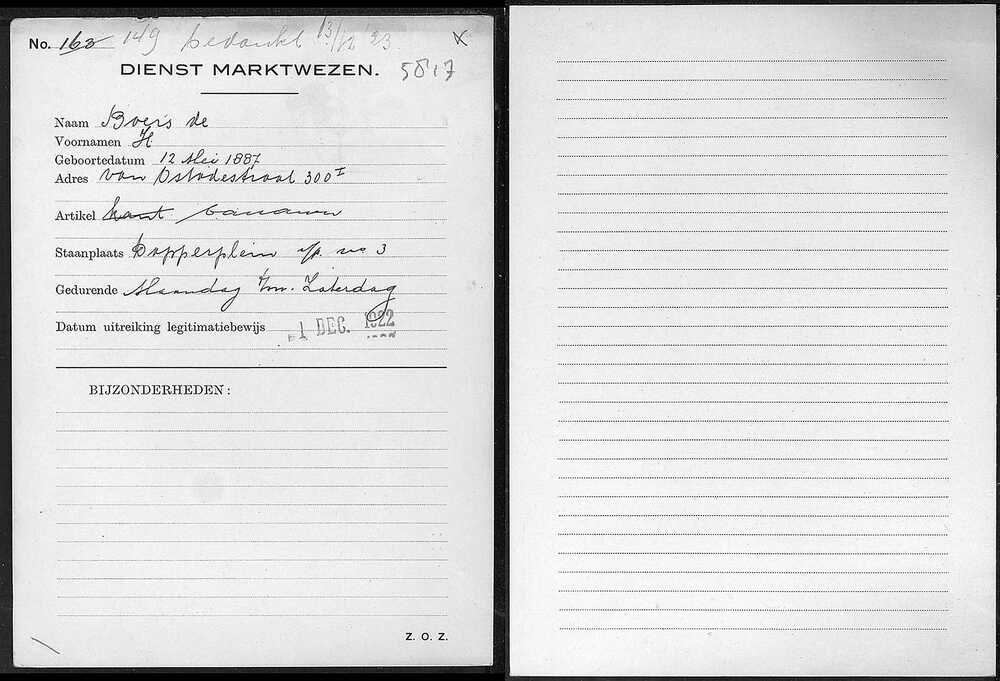 No. 163 149 bedankt 13/12 '23
DIENST MARKTWEZEN. 5817
Naam Boers de
Voornamen H
Geboortedatum 12 Mei 1887
Adres van Ostadestraat 300 I
Artikel kant bananen
Staanplaats Dapperplein s/p. no 3
Gedurende Maandag t/m. Zaterdag
Datum uitreiking legitimatiebewijs -1 DEC. 1922
BIJZONDERHEDEN:
Z. O. Z.